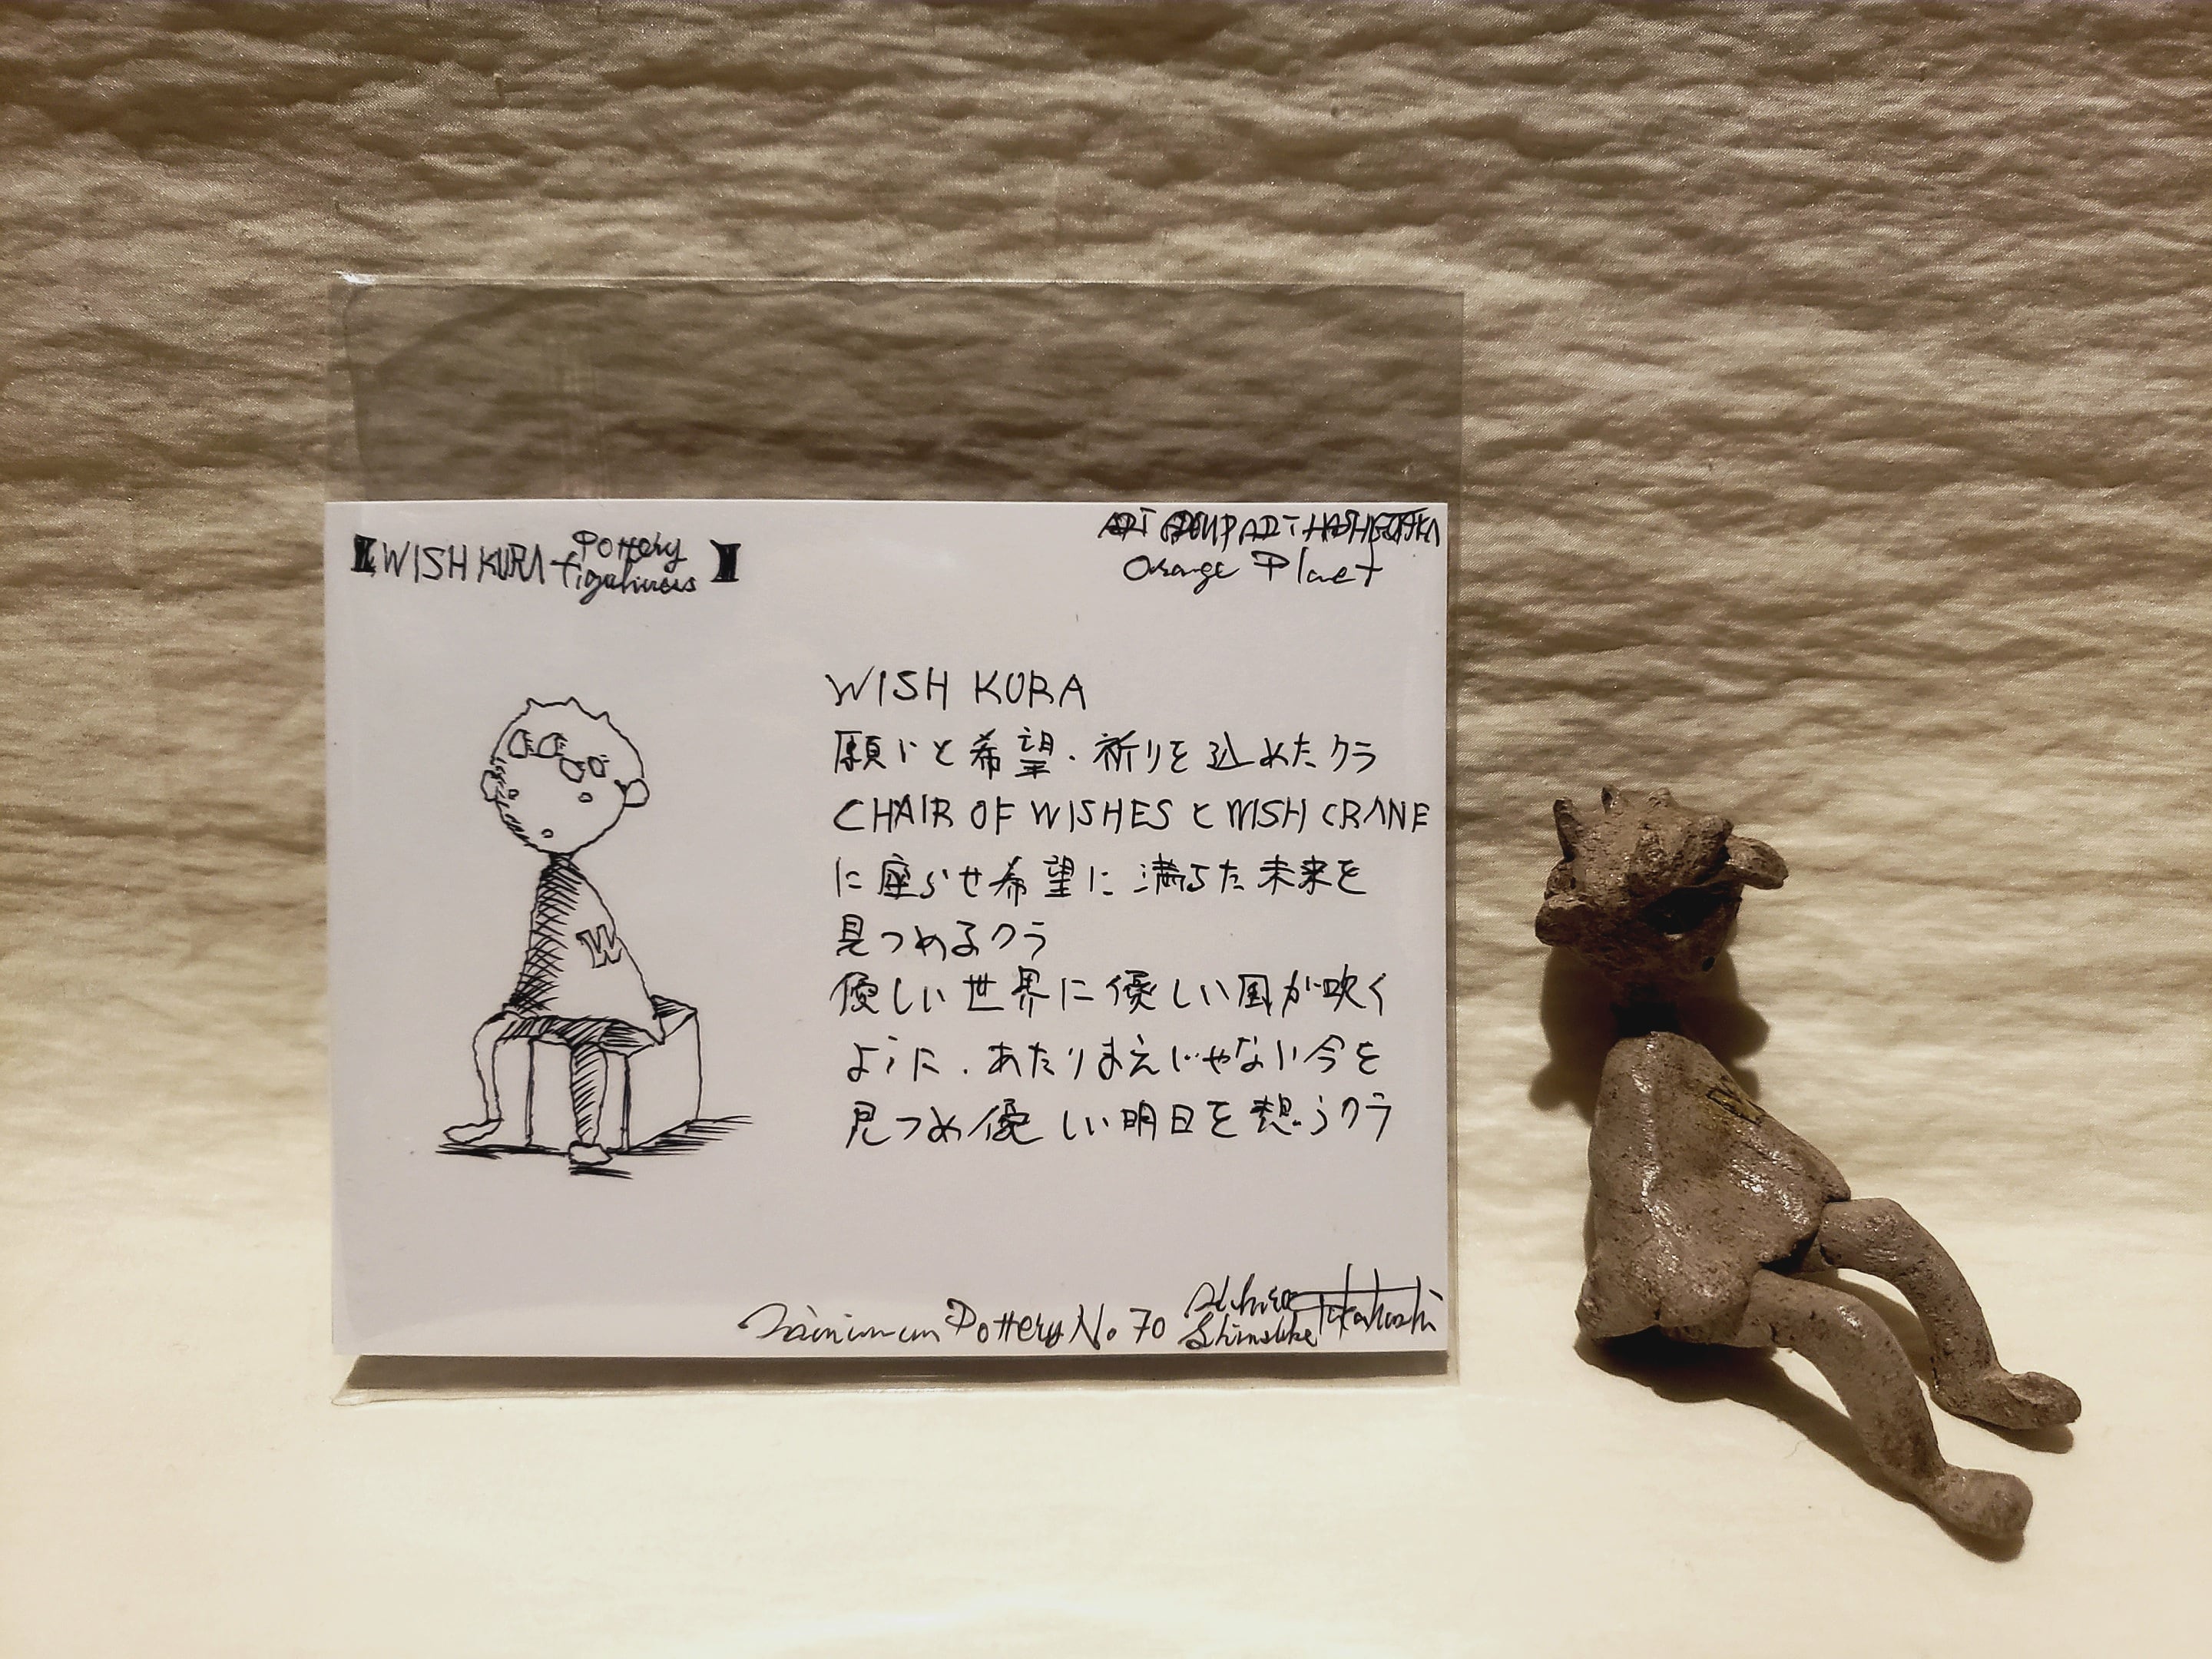 【WISH KURA Pottery figalinees】
ART GROUP ART HASHIGOTAKA
Orange Planet
W
WISH KURA
願いと希望・祈りを込めたクラ
CHAIR OF WISHES と WISH CRANE
に座らせ希望に満ちた未来を
見つめるクラ
優しい世界に優しい風が吹く
ように、あたりまえじゃない今を
見つめ優しい明日を想うクラ
Pottery No 70
Takahashi